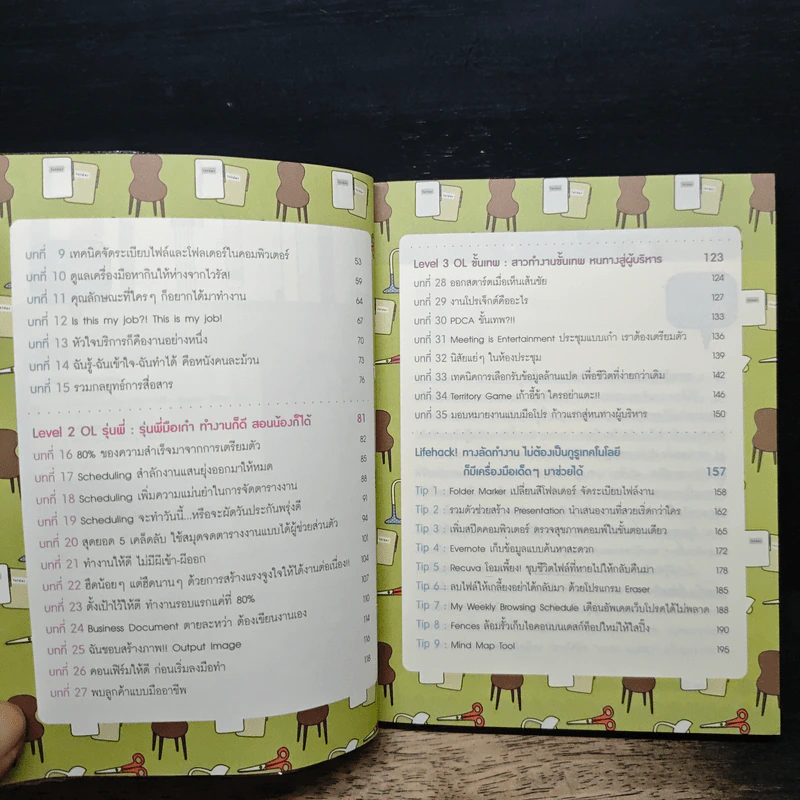 บทที่ 9 เทคนิคจัดระเบียบไฟล์และโฟลเดอร์ในคอมพิวเตอร์ 53
บทที่ 10 ดูแลเครื่องมือหากินให้ห่างจากไวรัส! 59
บทที่ 11 คุณลักษณะที่ใครๆ ก็อยากได้มาทำงาน 64
บทที่ 12 Is this my job?! This is my job! 67
บทที่ 13 หัวใจบริการก็คืองานอย่างหนึ่ง 70
บทที่ 14 ฉันรู้-ฉันเข้าใจ-ฉันทำได้ คือหนังคนละม้วน 73
บทที่ 15 รวมกลยุทธ์การสื่อสาร 76
Level 2 OL รุ่นพี่ : รุ่นพี่มือเก๋า ทำงานก็ดี สอนน้องก็ได้ 81
บทที่ 16 80% ของความสำเร็จมาจากการเตรียมตัว 82
บทที่ 17 Scheduling สำลักงานแสนยุ่งออกมาให้หมด 85
บทที่ 18 Scheduling เพิ่มความแม่นยำในการจัดตารางงาน 88
บทที่ 19 Scheduling จะทำวันนี้...หรือจะผัดวันประกันพรุ่งดี 91
บทที่ 20 สุดยอด 5 เคล็ดลับ ใช้สมุดจดตารางงานแบบได้ผู้ช่วยส่วนตัว 94
บทที่ 21 ทำงานให้ดี ไม่มีผีเข้า-ผีออก 101
บทที่ 22 ฮึดน้อยๆ แต่ฮึดนานๆ ด้วยการสร้างแรงจูงใจให้ได้งานต่อเนื่อง!! 104
บทที่ 23 ตั้งเป้าไว้ให้ดี ทำงานรอบแรกแค่ที่ 80% 107
บทที่ 24 Business Document ตายละหว่า ต้องเขียนงานเอง 110
บทที่ 25 ฉันชอบสร้างภาพ!! Output Image 114
บทที่ 26 คอนเฟิร์มให้ดี ก่อนเริ่มลงมือทำ 116
บทที่ 27 พบลูกค้าแบบมืออาชีพ 118
Level 3 OL ชั้นเทพ : สาวทำงานชั้นเทพ หนทางสู่ผู้บริหาร 123
บทที่ 28 ออกสตาร์ตเมื่อเห็นเส้นชัย 124
บทที่ 29 งานโปรเจ็กต์คืออะไร 127
บทที่ 30 PDCA ชั้นเทพ?!! 133
บทที่ 31 Meeting is Entertainment ประชุมแบบเก๋า เราต้องเตรียมตัว 136
บทที่ 32 นิสัยแย่ๆ ในห้องประชุม 139
บทที่ 33 เทคนิคการเลือกรับข้อมูลล้านแปด เพื่อชีวิตที่ง่ายกว่าเดิม 142
บทที่ 34 Territory Game เก้าอี้ข้า ใครอย่าแตะ!! 146
บทที่ 35 มอบหมายงานแบบมือโปร ก้าวแรกสู่หนทางผู้บริหาร 150
Lifehack! ทางลัดทำงาน ไม่ต้องเป็นกูรูเทคโนโลยี
ก็มีเครื่องมือเด็ดๆ มาช่วยได้ 157
Tip 1 : Folder Marker เปลี่ยนสีโฟลเดอร์ จัดระเบียบไฟล์งาน 158
Tip 2 : รวมตัวช่วยสร้าง Presentation นำเสนองานที่สวยเริ่ดกว่าใคร 162
Tip 3 : เพิ่มสปีดคอมพิวเตอร์ ตรวจสุขภาพคอมพ์ในขั้นตอนเดียว 165
Tip 4 : Evernote เก็บข้อมูลแบบค้นหาสะดวก 172
Tip 5 : Recuva โอมเพี้ยง! ชุบชีวิตไฟล์ที่หายไปให้กลับคืนมา 178
Tip 6 : ลบไฟล์ให้เกลี้ยงอย่าได้กลับมา ด้วยโปรแกรม Eraser 185
Tip 7 : My Weekly Browsing Schedule เตือนอัพเดตเว็บโปรดได้ไม่พลาด 188
Tip 8 : Fences ล้อมรั้วเก็บไอคอนบนเดสก์ท็อปใหม่ให้ไสปิ๊ง 190
Tip 9 : Mind Map Tool 195